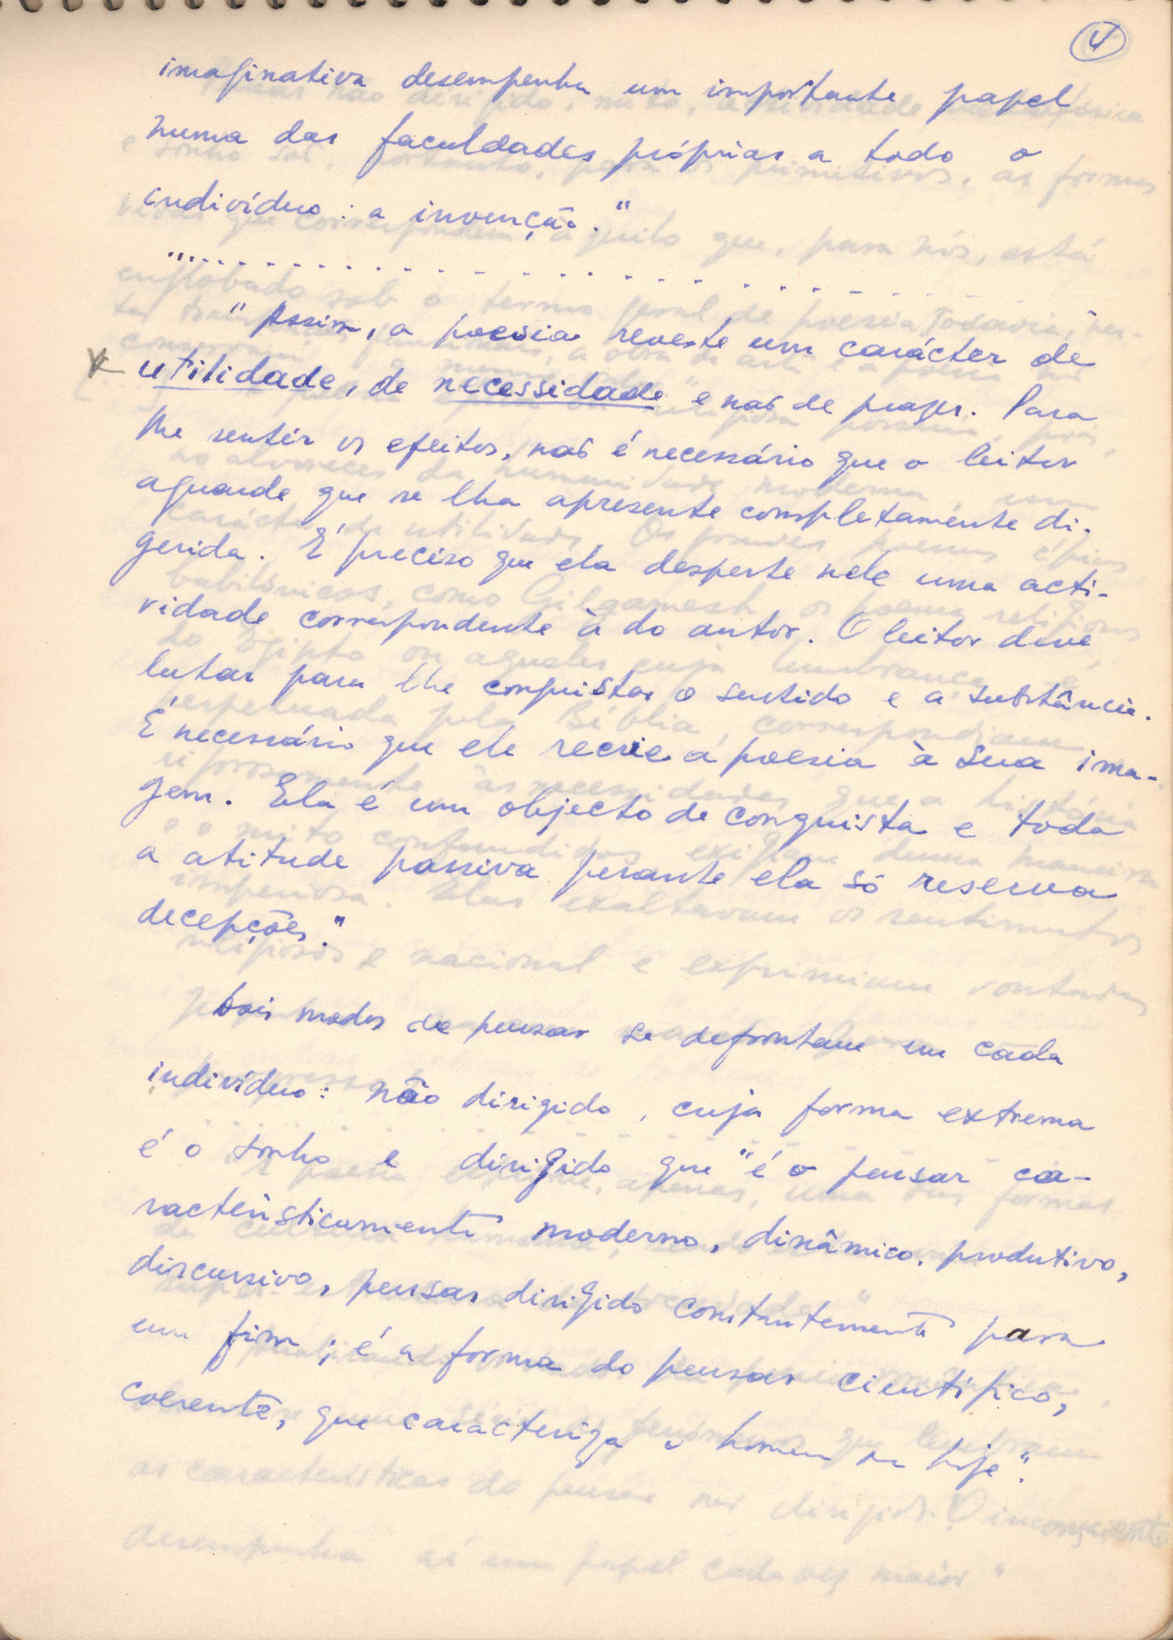 4
imaginativa desempenha um importante papel
numa das faculdades próprias a todo o
indivíduo: a invenção."
"..............................
" Assim, a poesia reveste um carácter de
utilidade, de necessidade" e não de prazer. Para
lhe sentir os efeitos, não é necessário que o leitor
aguarde que se lha apresente completamente di-
gerida. É preciso que ela desperte nele uma acti-
vidade correspondente à do autor. O leitor deve
lutar para lhe conquistar o sentido e a substância.
É necessário que ele recrie a poesia à sua ima-
gem. Ela é um objecto de conquista e toda
a atitude passiva perante ela só reserva
decepções."
Dois modos de pensar se defrontam em cada
indivíduo: não dirigido, cuja forma extrema
é o sonho e dirigido que "é o pensar ca-
racteristicamente moderno, dinâmico, produtivo,
discursivo, pensar dirigido constantemente para
um fim; é a forma do pensar científico,
coerente, que caracteriza o homem de hoje".